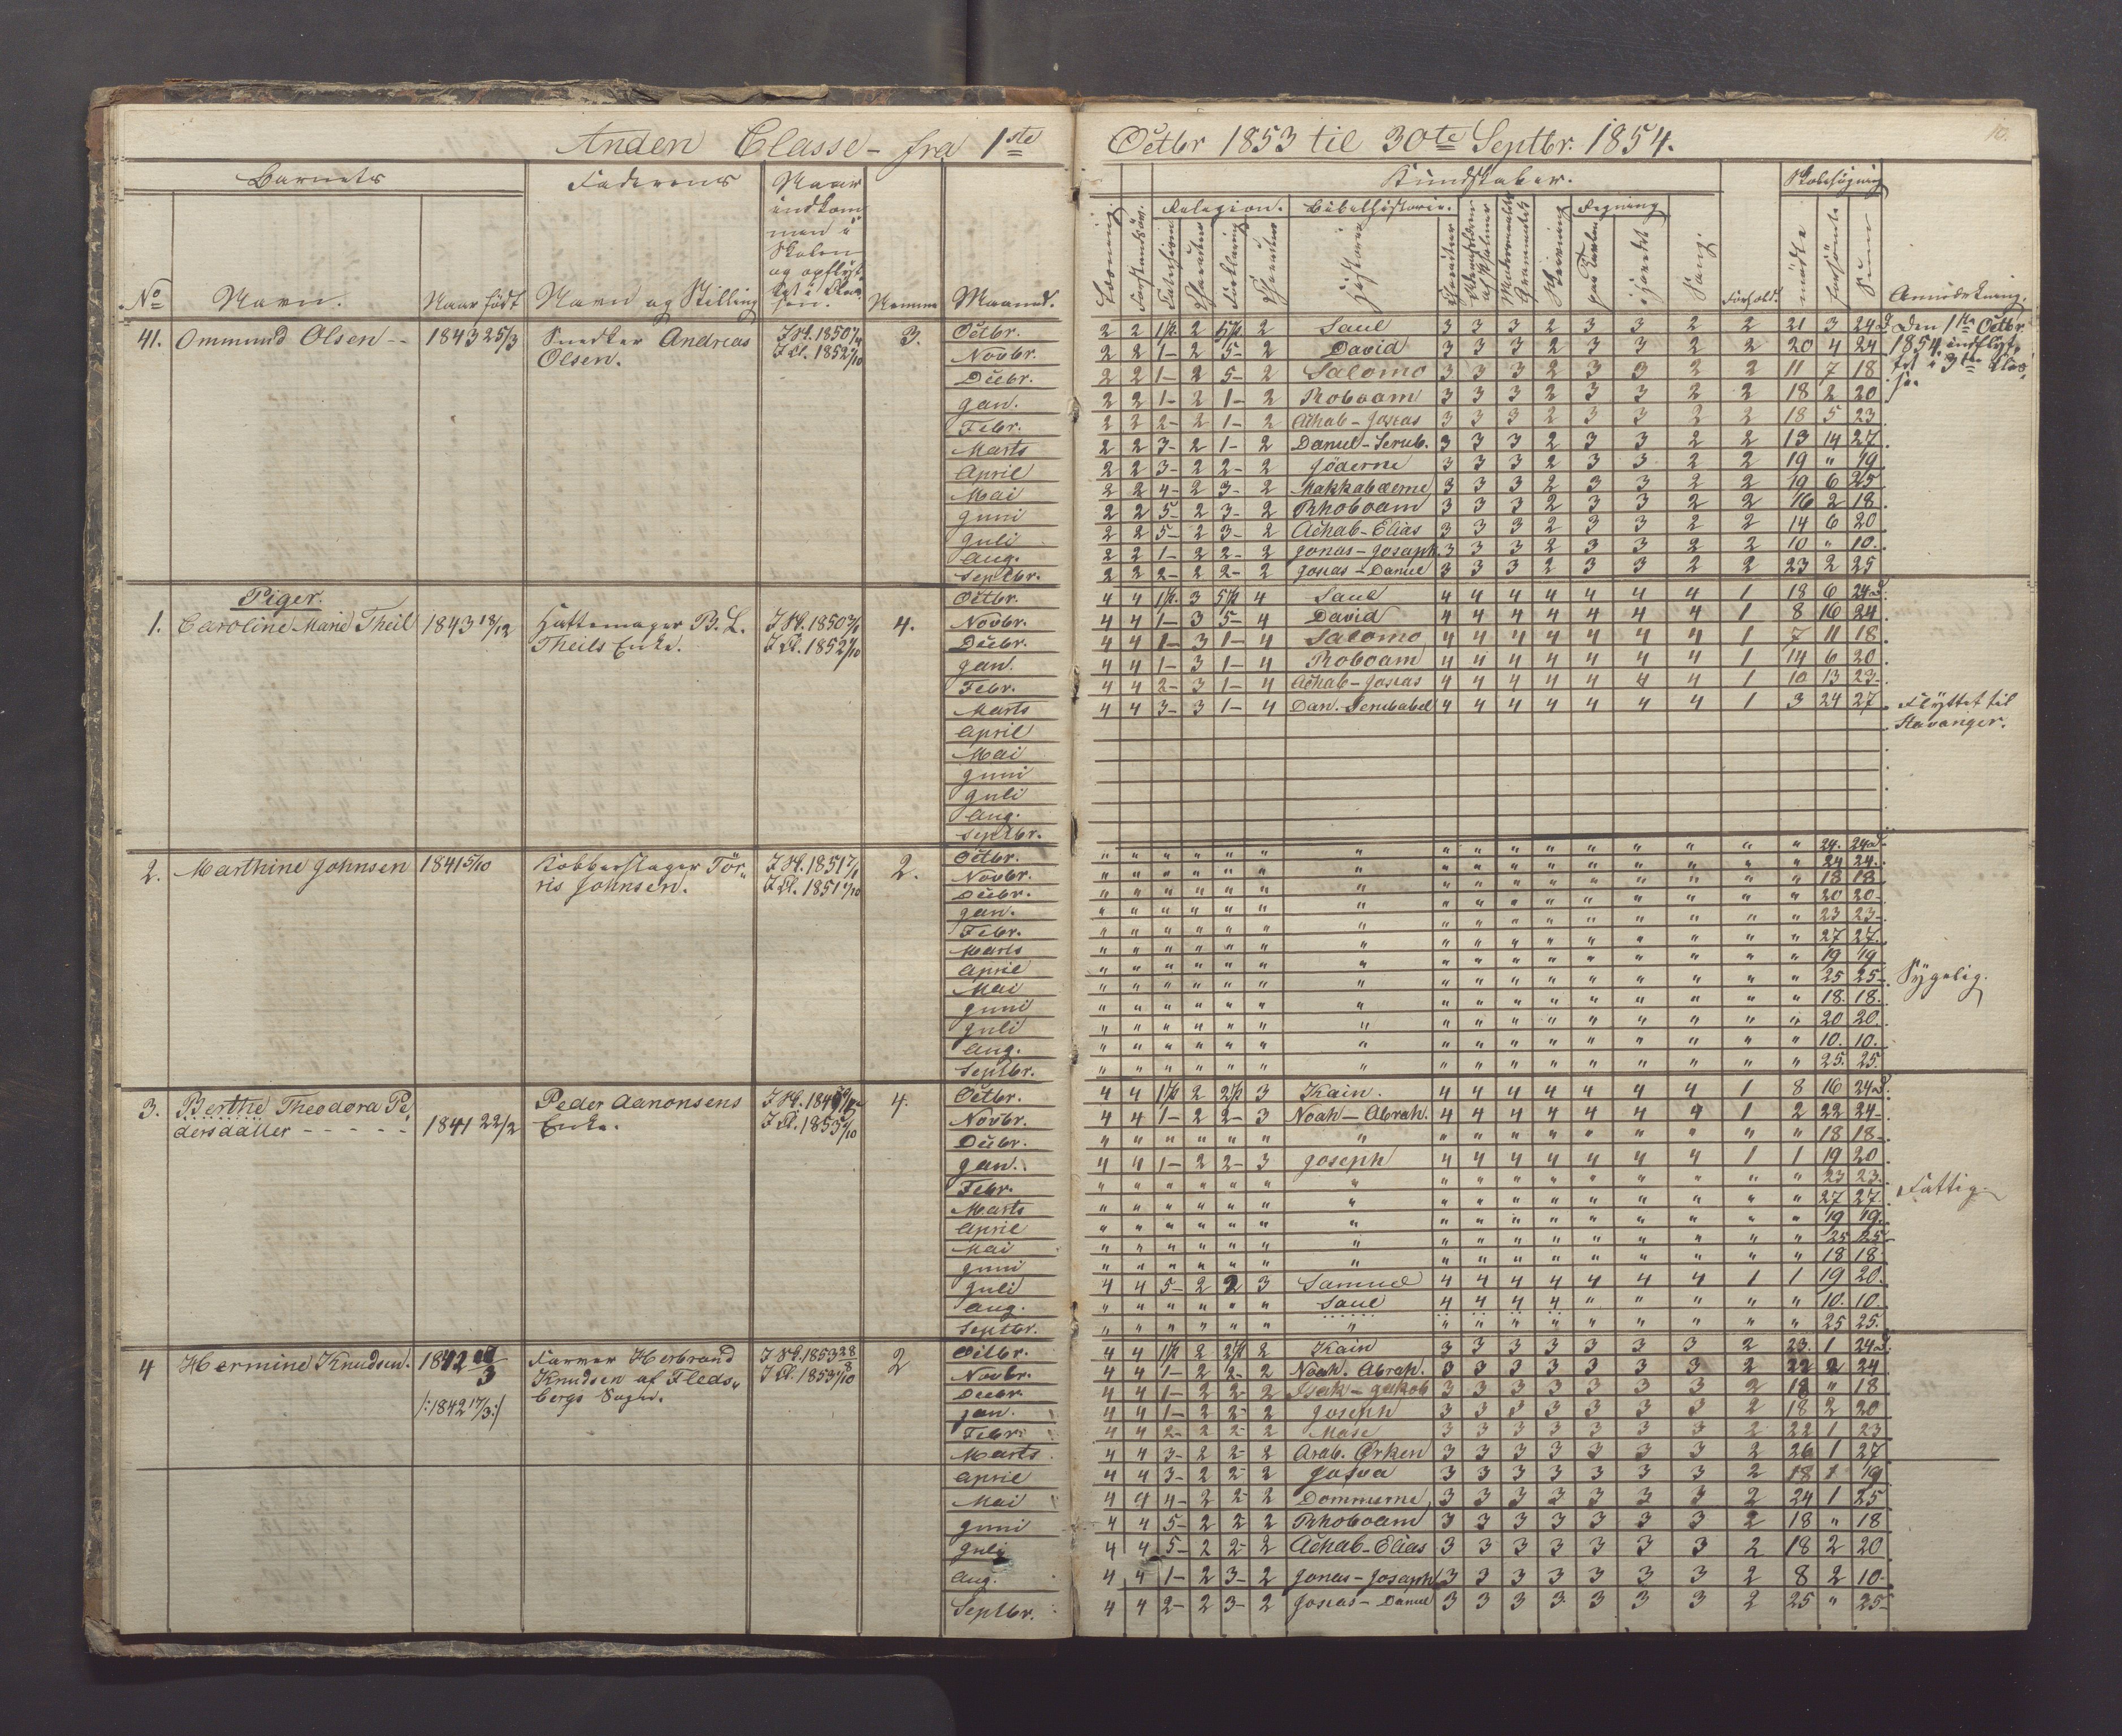 Anden Classe - fra 1ste Octbr 1853 til 30te Septbr. 1854.
Barnets Faderens Naar indkommen i Skolen og opflyttet i Klassen. Kundskaber. Skolesøgning
Religion. Bibelhistorie. Regning
No Navn. Naar født Navn og Stilling Nemme Maaned. Læsning Historie Skrivning Sang. Forhold. mødte forsømte Sum Anmærkning.
41. Ommund Olsen -- 1843 25/3 Snedker Andreas Olsen. 3.
Octbr. 2 2 1ste 2 5te 2 Saul 3 3 3 2 3 3 2 2 21 3 24 D. Den 1ste Octbr
Novbr. 2 2 1- 2 5- 2 David 3 3 3 2 3 3 2 2 20 4 24 1854 indflyt,
Decbr. 2 2 1- 2 5- 2 Salomo 3 3 3 2 3 3 2 2 11 7 18 tet i 3die Clas,
Jan. 2 2 1- 2 1- 2 Roboam 3 3 3 2 3 3 2 2 18 2 20 se.
Febr. 2 2 2- 2 1- 2 Achab-Josias 3 3 3 2 3 3 2 2 18 5 23
Marts 2 2 3- 2 1- 2 Daniel-Serub. 3 3 3 2 3 3 2 2 13 14 27
April 2 2 3- 2 2- 2 Jöderne 3 3 3 2 3 3 2 2 19 " 19
Mai 2 2 4- 2 3- 2 Makkabæerne 3 3 3 2 3 3 2 2 19 6 25
Juni 2 2 5- 2 3- 2 Rhoboam 3 3 3 2 3 3 2 2 16 2 18
Juli 2 2 5- 2 3- 2 Achab-Elias 3 3 3 2 3 3 2 2 14 6 20
Aug. 2 2 1- 2 2- 2 Jonas-Josaph 3 3 3 2 3 3 2 2 10 " 10.
Septbr. 2 2 2- 2 2- 2 Josias-Daniel 3 3 3 2 3 3 2 2 23 2 25
Piger.
1. Caroline Marie Theil 1843 18/12 Hattemager B. L. Theils Enke. 4.
Octbr. 4 4 1ste 3 5te 4 Saul 4 4 4 4 4 4 4 1 18 6 24 D.
Novbr. 4 4 1- 3 5- 4 David 4 4 4 4 4 4 4 1 8 16 24
Decbr. 4 4 1- 3 1- 4 Salomo 4 4 4 4 4 4 4 1 7 11 18
Jan. 4 4 1- 3 1- 4 Roboam 4 4 4 4 4 4 4 1 14 6 20
Febr. 4 4 2- 3 1- 4 Achab-Josias 4 4 4 4 4 4 4 1 10 13 23
Marts 4 4 3- 3 1- 4 Dan. Serubabel 4 4 4 4 4 4 4 1 3 24 27 Flyttet til
April Stavanger.
Mai
Juni
Juli
Aug.
Septbr.
2. Marthine Johnsen 1841 5/10 Kobberslager Tör,ris Johnsen. 2.
Octbr. " " " " " " " " " " " " " " " " 24. 24 D.
Novbr. " " " " " " " " " " " " " " " " 24 24.
Decbr. " " " " " " " " " " " " " " " " 18 18
Jan. " " " " " " " " " " " " " " " " 20 20
Febr. " " " " " " " " " " " " " " " " 23 23
Marts " " " " " " " " " " " " " " " " 27 27.
April " " " " " " " " " " " " " " " " 19 19
Mai " " " " " " " " " " " " " " " " 25 25 Sygelig.
Juni " " " " " " " " " " " " " " " " 18. 18.
Juli " " " " " " " " " " " " " " " " 20 20.
Aug. " " " " " " " " " " " " " " " " 10. 10.
Septbr. " " " " " " " " " " " " " " " " 25. 25
3. Berthe Theodora Pe,dersdatter - - - - - 1841 22/2 Peder Aanonsens Enke. 4.
Octbr. 4 4 1ste 2 2den 3 Kain. 4 4 4 4 4 4 4 1 8 16 24 D.
Novbr. 4 4 1- 2 2- 3 Noah-Abrah. 4 4 4 4 4 4 4 1 2 22 24
Decbr. " " " " " " " " " " " " " " " " 18 18
Jan. 4 4 1- 2 2- 3 Joseph 4 4 4 4 4 4 4 1 1 19 20
Febr. " " " " " " " " " " " " " " " " 23 23.
Marts " " " " " " " " " " " " " " " " 27 27. Fattig.
April " " " " " " " " " " " " " " " " 19 19.
Mai " " " " " " " " " " " " " " " " 25 25
Juni " " " " " " " " " " " " " " " " 18 18
Juli 4 4 5- 2 2 3 Samuel 4 4 4 4 4 4 4 1 1 19 20.
Aug. " " " " " " Saul 4 4 4 4 " " " " " 10. 10.
Septbr. " " " " " " " " " " " " " " " " 25 25.
4 Hermine Knudsen. 1842 /3 /:1842 17/3:/ Farver Herbrand Knudsen af Fleds,bergs Sogn. 2
Octbr. 4 4 1ste 2 2den 2 Kain 3 3 3 3 3 3 3 2 23. 1 24 D.
Novbr. 4 4 1- 2 2- 2 Noah. Abrah. 3 3 3 3 3 3 3 2 22 2 24
Decbr 4 4 1- 2 2- 2 Isak-Jakob 3 3 3 3 3 3 3 2 18 " 18
Jan. 4 4 1- 2 2- 2 Joseph 3 3 3 3 3 3 3 2 18 2 20
Febr. 4 4 2- 2 2- 2 Mose 3 3 3 3 3 3 3 2 22 1 23
Marts 4 4 3- 2 2- 2 Arab. Ørken 3 3 3 3 3 3 3 2 26 1 27
April 4 4 3- 2 2- 2 Josva 3 3 3 3 3 3 3 2 18 1 19
Mai 4 4 4- 2 2- 2 Dommerne 3 3 3 3 3 3 3 2 24 1 25
Juni 4 4 5- 2 2 2 Rhoboam 3 3 3 3 3 3 3 2 18 " 18
Juli 4 4 5- 2 2- 2 Achab-Elias 3 3 3 3 3 3 3 2 18 2 20
Aug. 4 4 1- 2 3- 2 Jonas-Josaph 3 3 3 3 3 3 3 2 8 2 10
Septbr. 4 4 2- 2 3- 2 Josias-Daniel 3 3 3 3 3 3 3 2 25 " 25